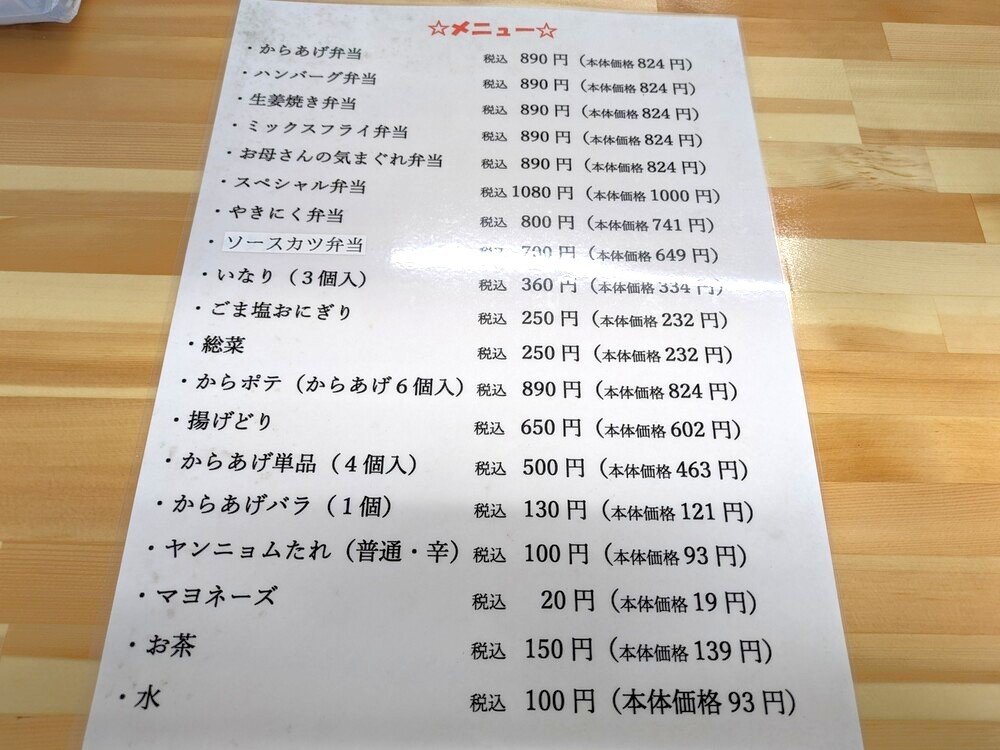 ☆メニュー☆
・からあげ弁当 税込 890円（本体価格824円）
・ハンバーグ弁当 税込 890円（本体価格824円）
・生姜焼き弁当 税込 890円（本体価格824円）
・ミックスフライ弁当 税込 890円（本体価格824円）
・お母さんの気まぐれ弁当 税込 890円（本体価格824円）
・スペシャル弁当 税込 1080円（本体価格1000円）
・やきにく弁当 税込 800円（本体価格741円）
・ソースカツ弁当 税込 700円（本体価格649円）
・いなり（３個入） 税込 360円（本体価格334円）
・ごま塩おにぎり 税込 250円（本体価格232円）
・総菜 税込 250円（本体価格232円）
・からポテ（からあげ６個入） 税込 890円（本体価格824円）
・揚げどり 税込 650円（本体価格602円）
・からあげ単品（４個入） 税込 500円（本体価格463円）
・からあげバラ（１個） 税込 130円（本体価格121円）
・ヤンニョムたれ（普通・辛） 税込 100円（本体価格93円）
・マヨネーズ 税込 20円（本体価格19円）
・お茶 税込 150円（本体価格139円）
・水 税込 100円（本体価格93円）